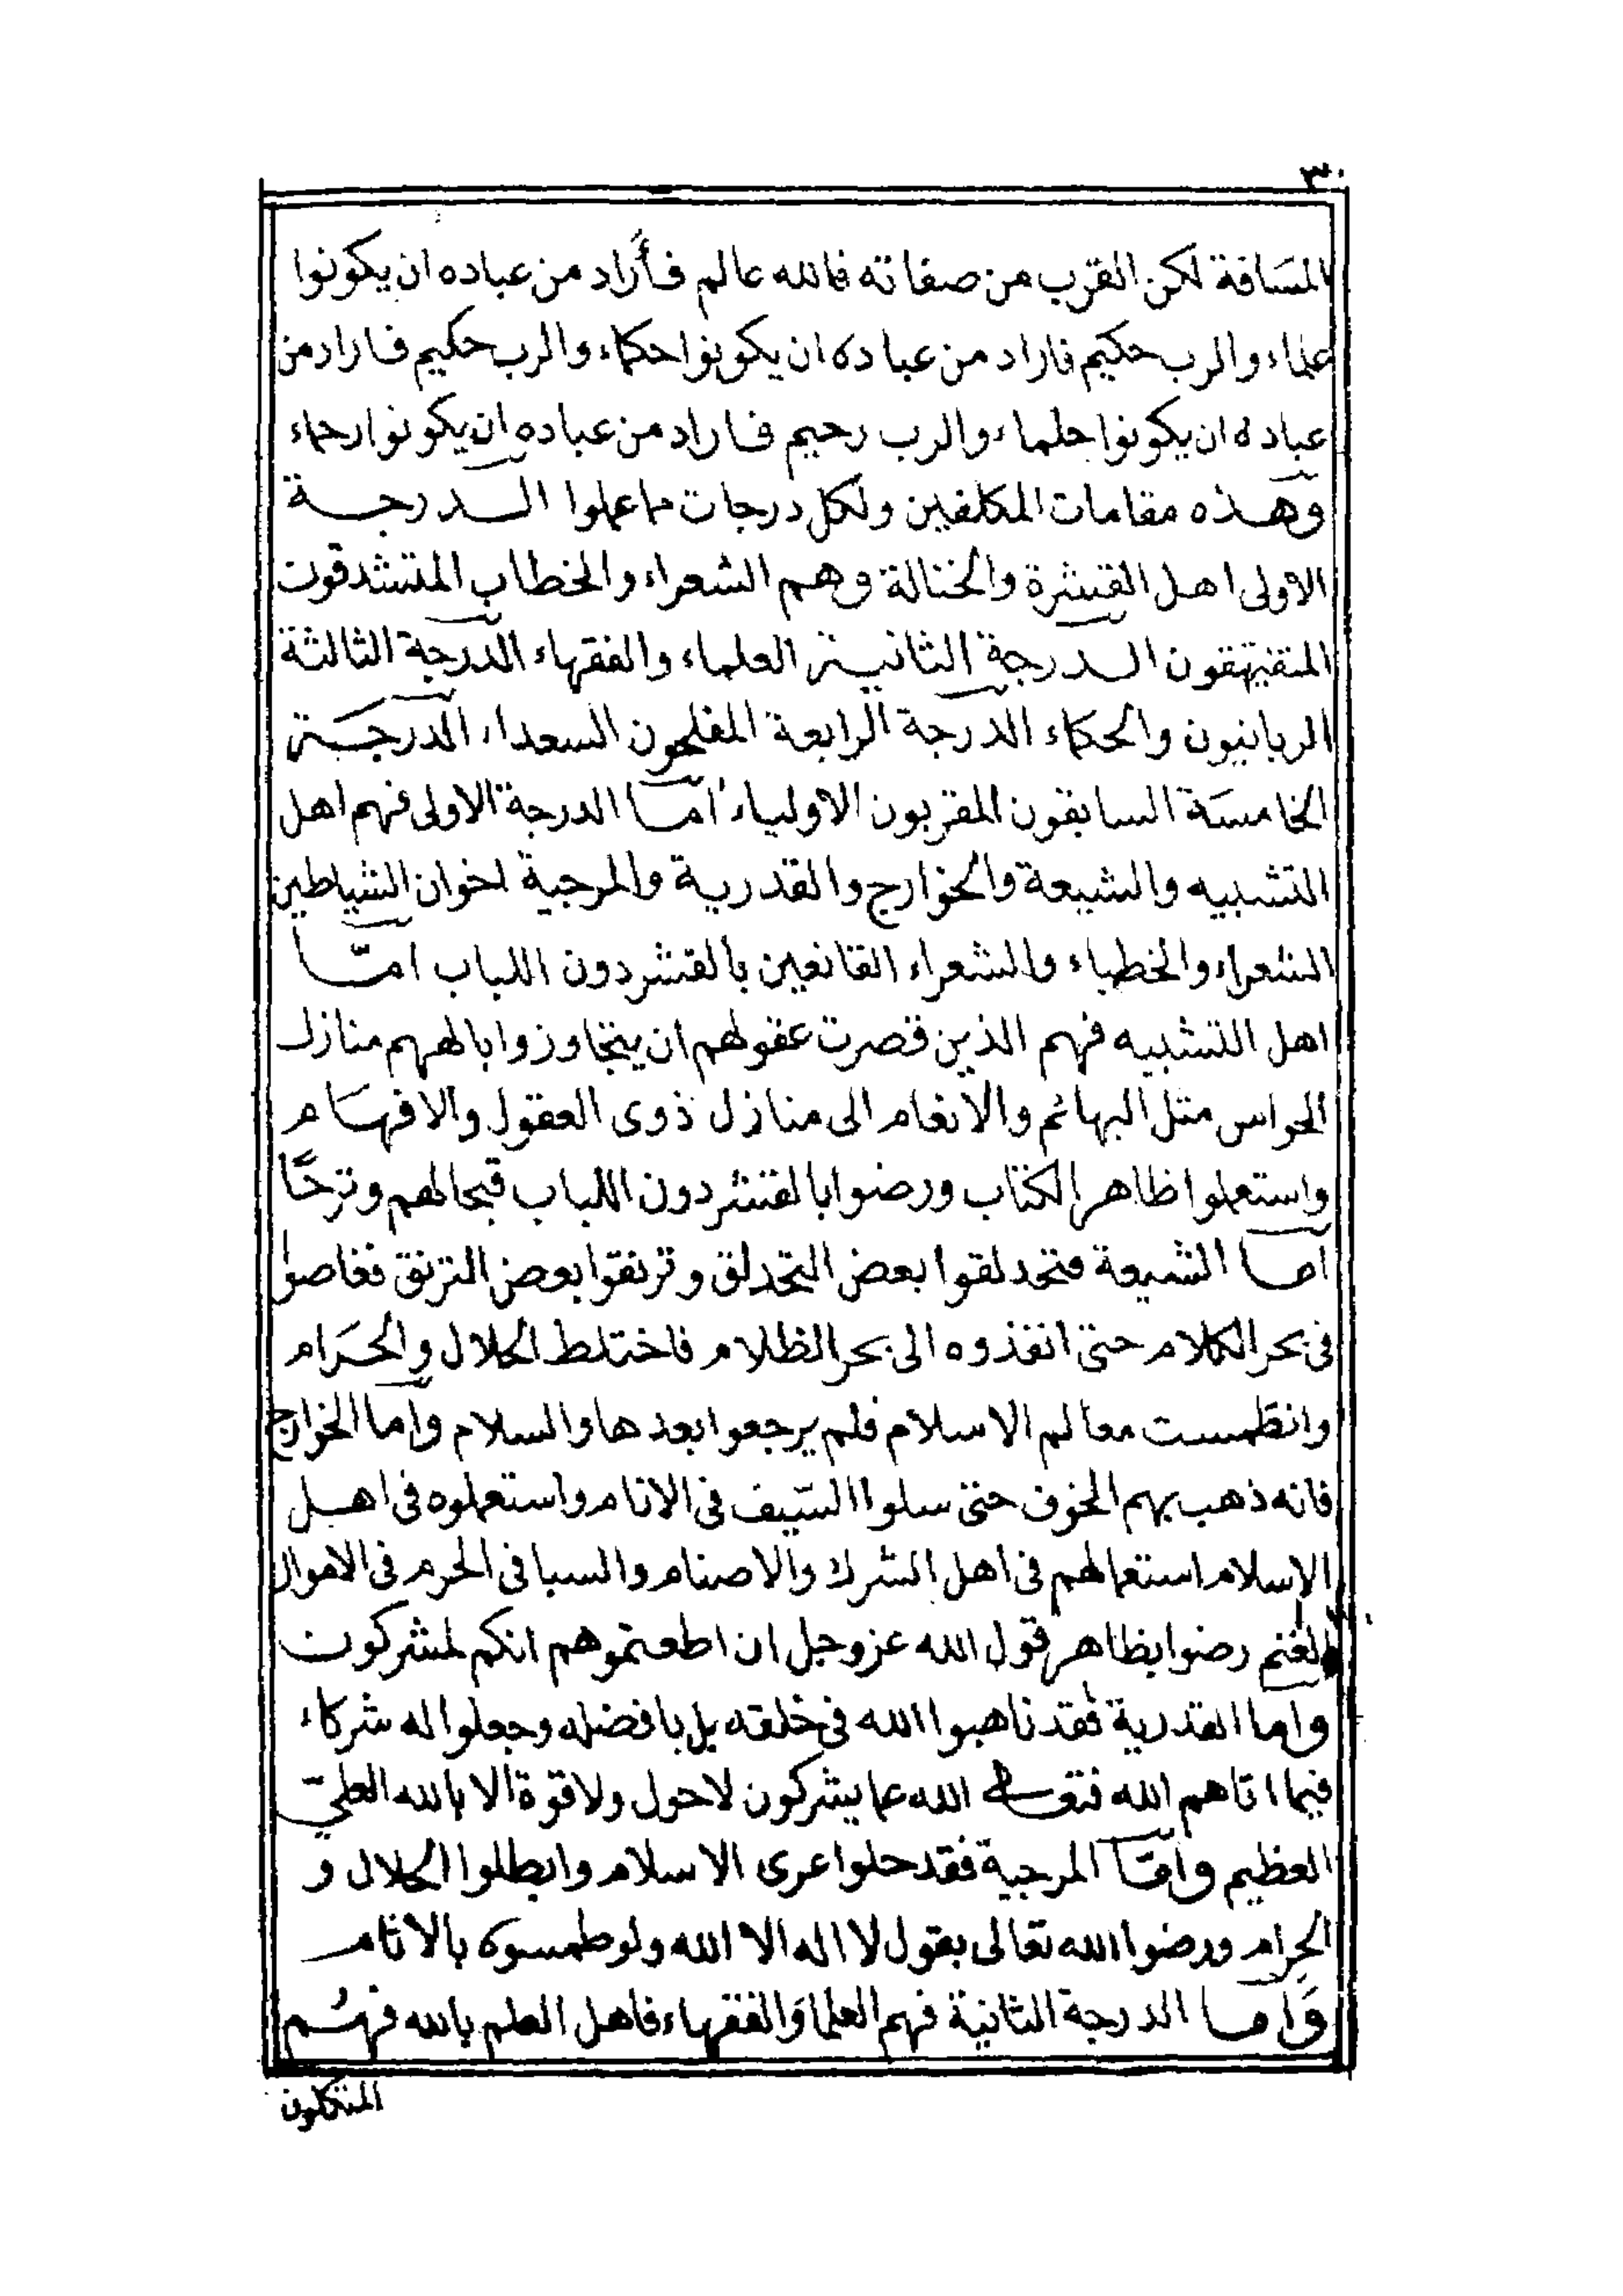 ٣٠
المسَافة لكن القرب من صفاته فالله عالم فأراد من عباده ان يكونوا
علماء والرب حكيم فاراد من عباده ان يكونوا حكماء والرب حكيم فاراد من
عباده ان يكونوا حلماء والرب رحيم فاراد من عباده ان يكونوا رحماء
وهذه مقامات المكلفين ولكل درجات مما عملوا الدرجة
الاولى اهل القشرة والحثالة وهم الشعراء والخطاب المتشدقون
المتفيهقون الدرجة الثانية العلماء والفقهاء الدرجة الثالثة
الربانيون والحكماء الدرجة الرابعة المفلحون السعداء الدرجَة
الخامسَة السابقون المقربون الاولياء امّا الدرجة الاولى فهم اهل
التشبيه والشيعة والخوارج والقدرية والمرجية اخوان الشياطين
الشعراء والخطباء والشعراء القانعين بالقشر دون اللباب امّا
اهل التشبيه فهم الذين قصرت عقولهم ان يتجاوزوا بالههم منازل
الحواس مثل البهائم والانعام الى منازل ذوى العقول والافهَام
واستعملوا ظاهر الكتاب ورضوا بالقشر دون اللباب قبحا لهم وترحًا
اما الشيعة فتحدلقوا بعض التحدلق وتزنقوا بعض التزنق فغاصوا
فى بحر الكلام حتى انفذوه الى بحر الظلام فاختلط الحلال والحَرام
وانطمست معالم الاسلام فلم يرجعوا بعدها والسلام واما الخوارج
فانه ذهب بهم الخوف حتى سلوا السّيف فى الانام واستعملوه فى اهل
الاسلام استعمالهم فى اهل الشرك والاصنام والسبا فى الحرم فى الاموال
والغنم رضوا بظاهر قول الله عز وجل ان اطعتموهم انكم لمشركون
واما القدرية فقد ناهبوا الله فى خلقه بل بافضله وجعلوا له شركاء
فيما اتاهم الله فتعالى الله عما يشركون لا حول ولا قوة الا بالله العليّ
العظيم وامّا المرجية فقد حلوا عرى الاسلام وابطلوا الحلال و
الحرام ورضوا الله تعالى بقول لا اله الا الله ولو طمسوه بالاثام
وَاما الدرجة الثانية فهم العلما وَالفقهاء فاهل العلم بالله فهُم
المتكلون